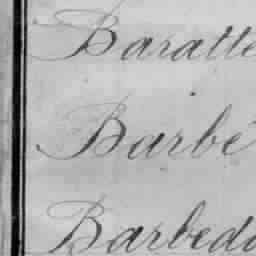 Baratte
Barbé
Barbedi